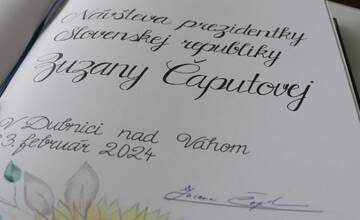 Návšteva prezidentky
Slovenskej republiky
Zuzany Čaputovej
V Dubnici nad Váhom
3. február 2024